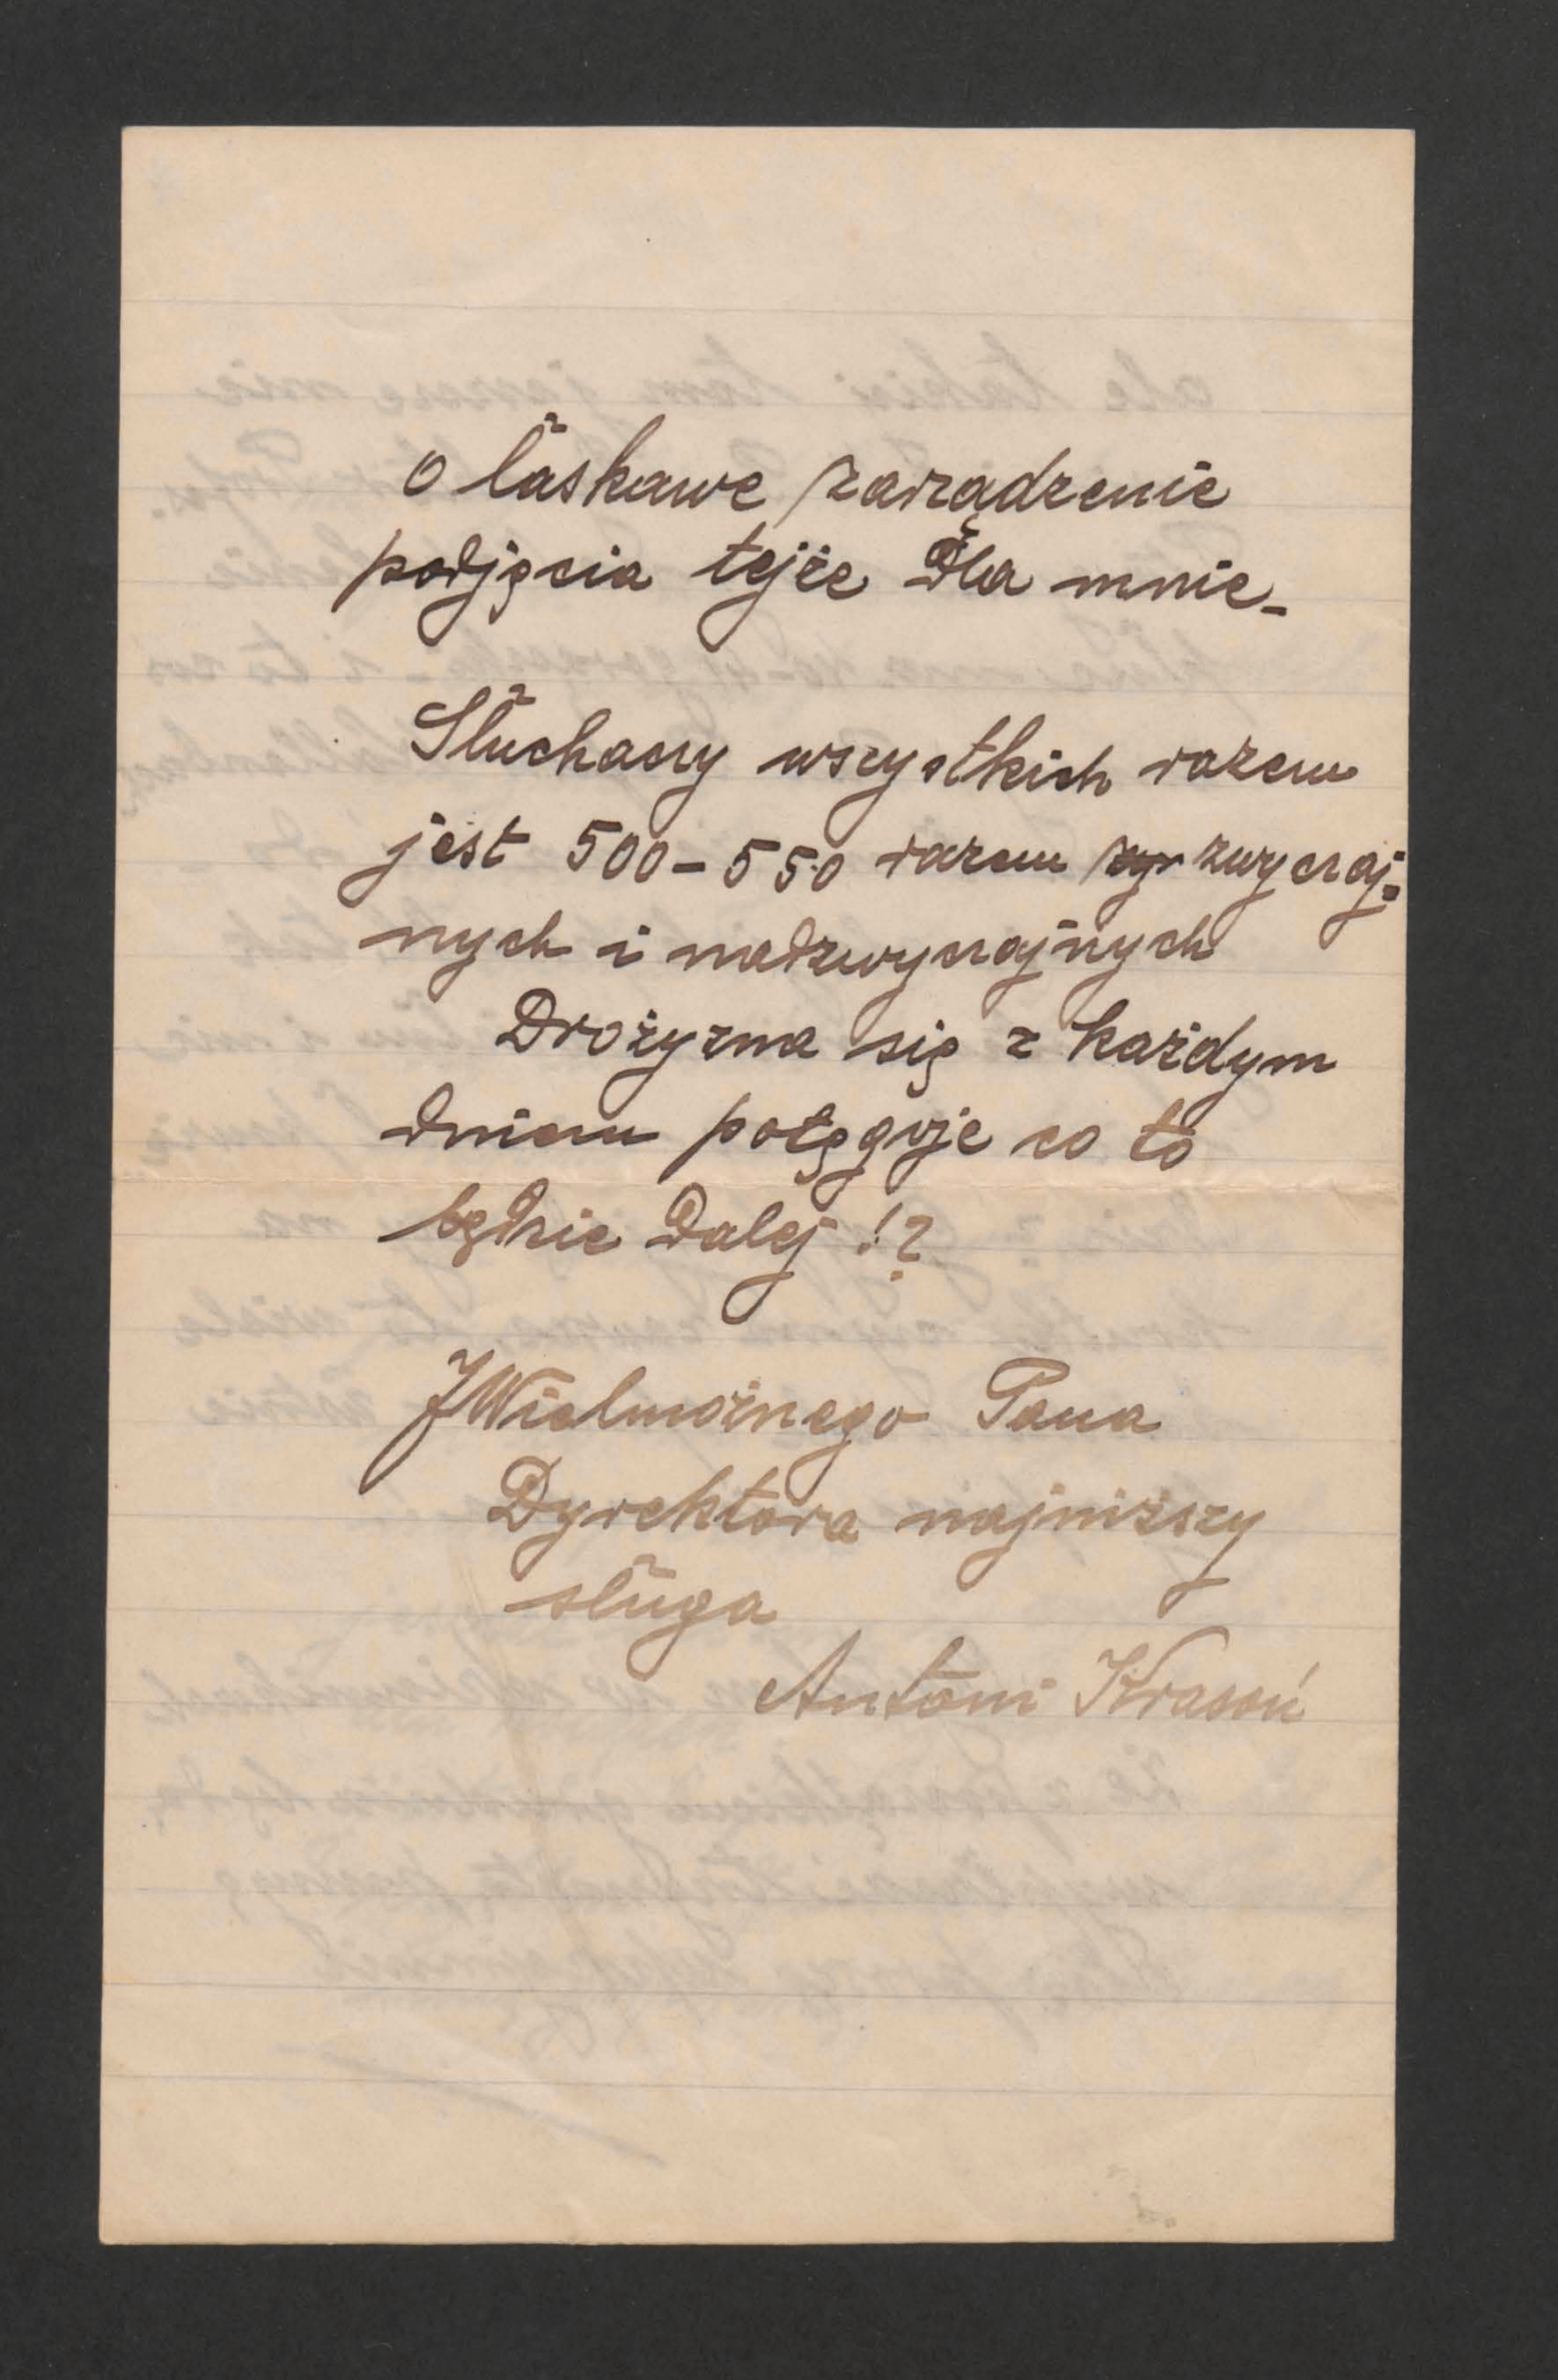 o łaskawe zarządzenie
podjęcia tejże dla mnie –
Słuchaczy wszystkich razem
jest 500 – 550 razem zwyczaj-
nych i nadzwyczajnych
Drożyzna się z każdym
dniem potęguje co to
będzie dalej !?
JWielmożnego Pana
Dyrektora najniższy
sługa
Antoni Krasoń